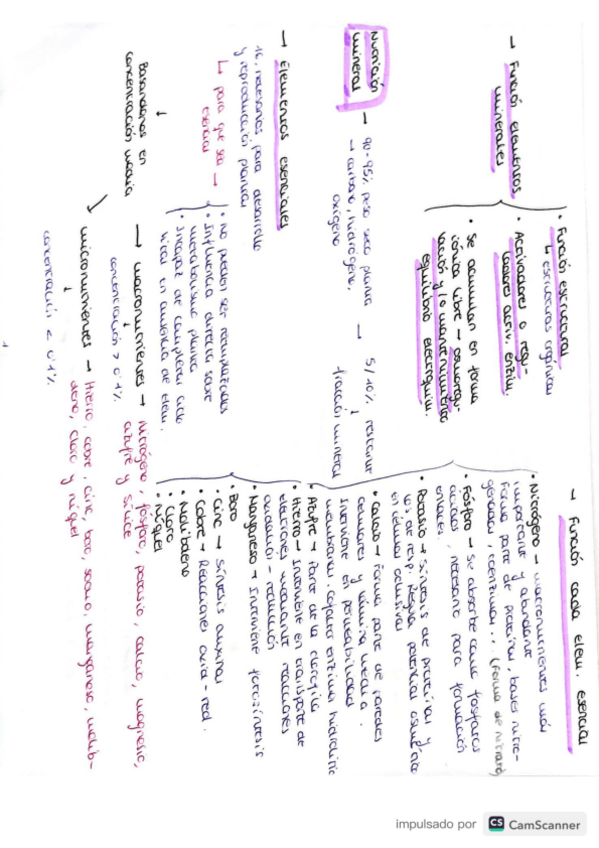 Nutrición
mineral
→ 90-95% peso seco planta → 5/10% restante
→ carbono, hidrógeno, oxígeno
fracción mineral
→ Función elementos
minerales
• Función estructural
↳ estructuras orgánicas
• Activadores o regu-
ladores activ. enzim.
• Se acumulan en forma
iónica libre → osmoregu-
lación y/o mantenimiento
equilibrio electroquím.
→ Elementos esenciales
16, necesarios para desarrollo
y reproducción plantas
↳ para que sea →
esencial
• no pueden ser reemplazados
• Influencia directa sobre
metabolismo planta
• Incapaz de completar ciclo
vital en ausencia de elem.
↓
Basándonos en
concentración media
→ macronutrientes → nitrógeno, fósforo, potasio, calcio, magnesio,
azufre y sílice
concentración > 0'1%
micronutrientes → Hierro, cobre, cinc, boro, sodio, manganeso, molib-
deno, cloro y níquel
concentración < 0'1%
→ Función cada elem. esencial
• Nitrógeno → macronutrientes más
importante y abundante
Forma parte de proteínas, bases nitro-
genadas, coenzimas... (Forma de nitrato)
• Fósforo → se absorbe como fosfatos
ácidos, necesario para formación
enlaces.
• Potasio → síntesis de proteínas y
de resp. Regula potencial osmótico
en células oclusivas
• Calcio → Forma parte de paredes
celulares y lámina media.
Interviene en permeabilidad
membranas, cofactor enzimas hidrolític
• Azufre → Parte de la clorofila
• Hierro → Interviene en transporte de
electrones mediante reacciones
oxidación - reducción
• Manganeso → Interviene fotosíntesis
• Boro
• Cinc → Síntesis auxinas
• Cobre → Reacciones oxid-red.
• Molibdeno
• Cloro
• Níquel
impulsado por CS CamScanner